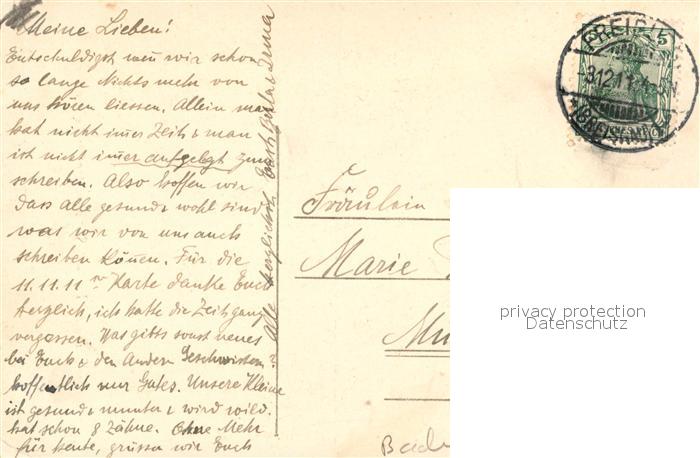 Meine Lieben!
Entschuldigt wenn wir schon
so lange Nichts mehr von
uns hören liessen. Allein man
hat nicht immer Zeit & man
ist nicht immer aufgelegt zum
schreiben. Also hoffen wir
dass alle gesund & wohl sind
was wir von uns auch
schreiben können. Für die
11.11.11 er Karte danke Euch
herzlich, ich hatte die Zeit ganz
vergessen. Was gibts sonst neues
bei Euch & den Andern Geschwistern?
hoffentlich nur Gutes. Unsere Kleine
ist gesund & munter & wird wild.
hat schon 8 Zähne. Ohne Mehr
für heute, grüssen wir Euch
Alle herzlichst Irma
FREIB
5
-3.12.11
BREISGAU
Fräulein
Marie
Mu
Bad
privacy protection
Datenschutz